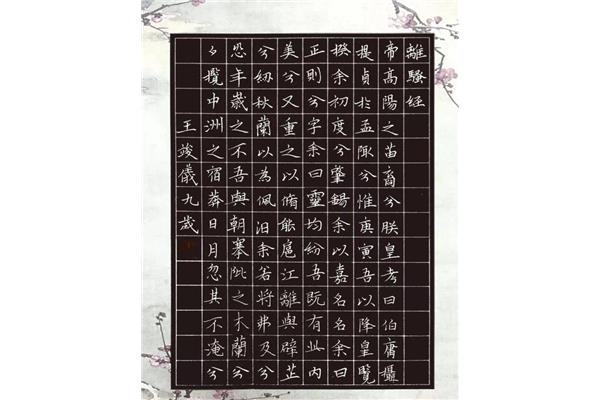 離騷經
帝高陽之苗裔兮朕皇考曰伯庸攝
提貞於孟陬兮惟庚寅吾以降皇覽
揆余初度兮肇錫余以嘉名名余曰
正則兮字余曰靈均紛吾既有此內
美兮又重之以脩能扈江離與辟芷
兮紉秋蘭以為佩汩余若將弗及兮
恐年歲之不吾與朝搴阰之木蘭兮
夕攬中洲之宿莽日月忽其不淹兮
王竣儀九歲